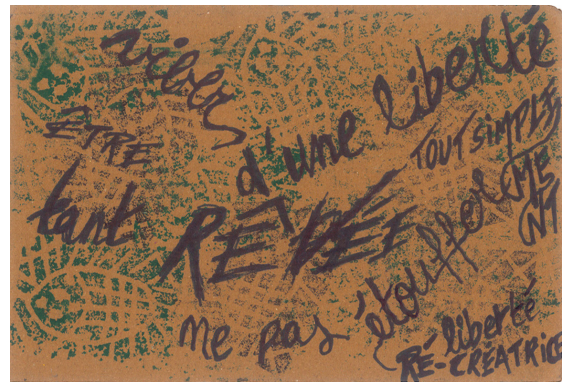 vibrer
d'une liberté
ÊTRE
TOUT SIMPLE
ME
NT
tant RÊVÉE
ne pas étouffer
liberté
RÉ-CRÉATRICE